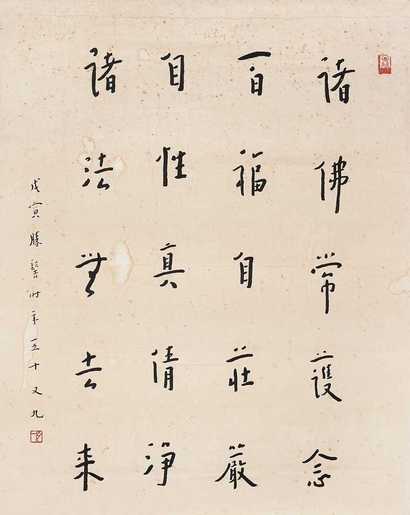 諸佛常護念
百福自莊嚴
自性真清淨
諸法無去来
戊寅勝髻時年五十又九